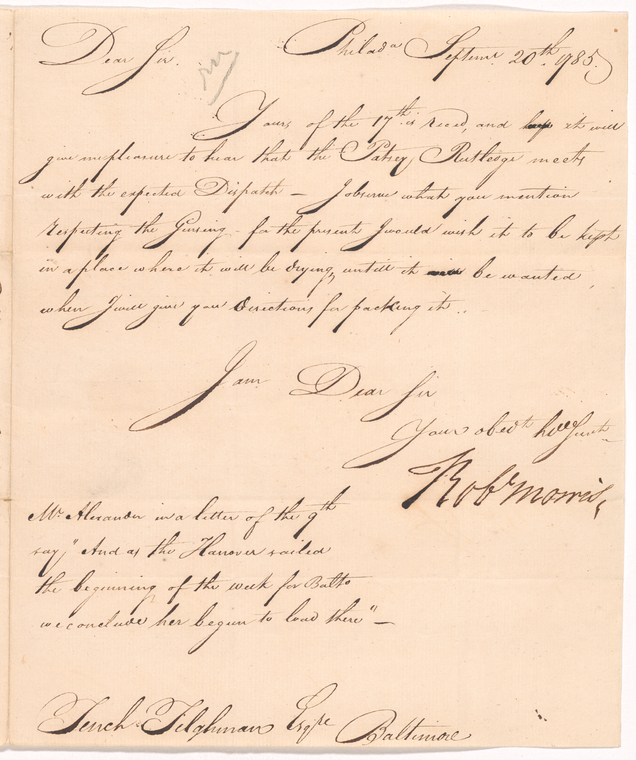 Dear Sir. Philada Septemr 20th 1785
Yours of the 17th is recd, and it will
give me pleasure to hear that the Patsey Rutledge meets
with the expected Dispatch — I observe what you mention
respecting the Ginseng. for the present I would wish it to be kept
in a place where it will be drying, untill it be wanted,
when I will give you Directions for packing it..
I am Dear Sir
Your obedt hble Servt
Robt Morris,
Mr. Alexander in a letter of the 9th
say," And as the Hanover sailed
the beginning of the week for Balto
we conclude her begun to load there" —
Tench Tilghman Esqre Baltimore